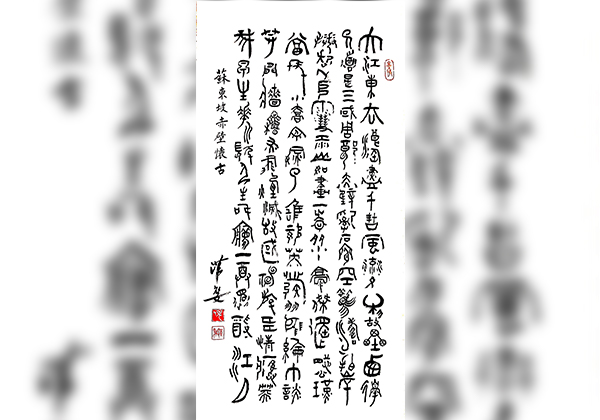 大江東去浪淘盡千古風流人物故壘西邊
人道是三國周郎赤壁亂石穿空驚濤拍岸
捲起千堆雪江山如畫一時多少豪傑遙想公瑾
當年小喬初嫁了雄姿英發羽扇綸巾談
笑間檣櫓灰飛煙滅故國神遊多情應笑
我早生華髮人生如夢一尊還酹江月
蘇東坡赤壁懷古